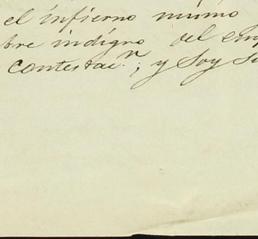 el infierno mismo
bre indigno del emp
contestaⁿ; y Soy Su